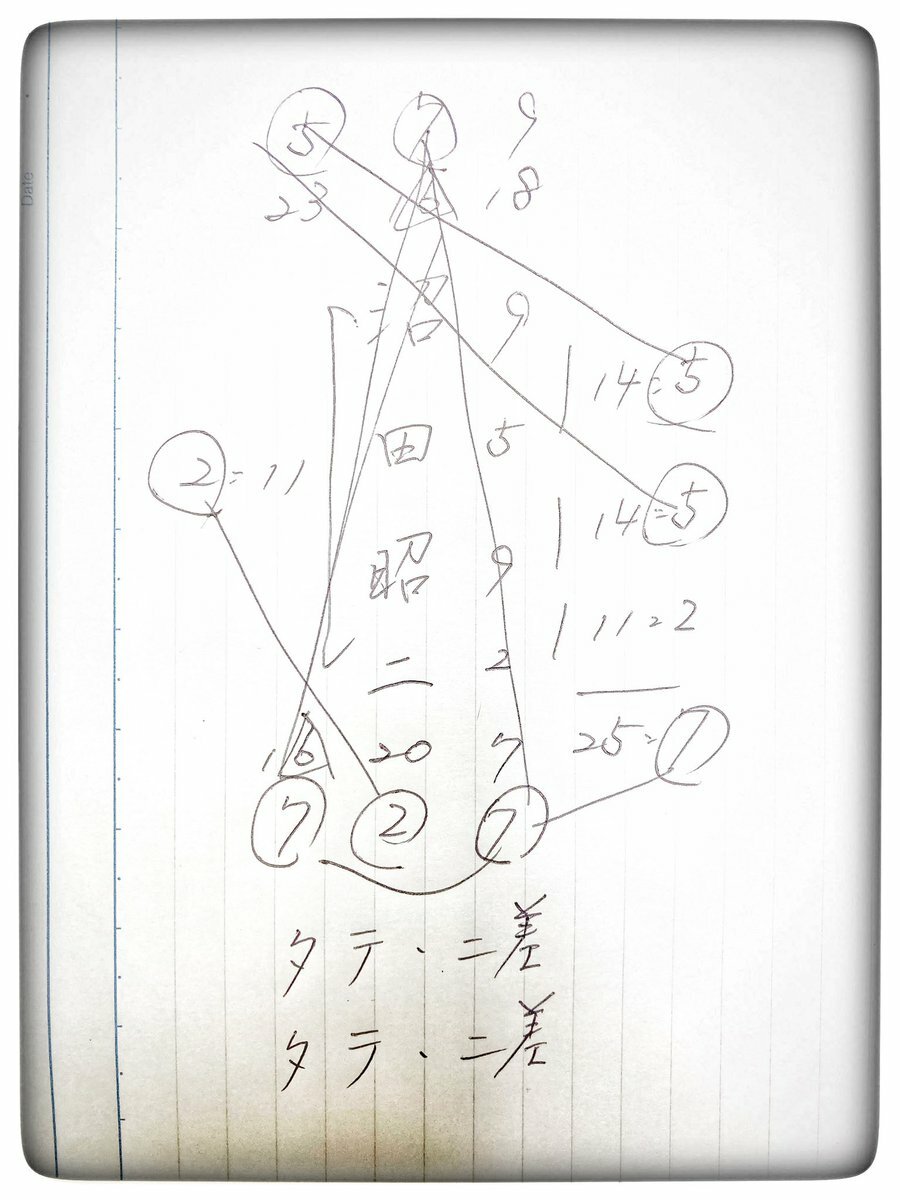 Date
5 7 9
23 16 18
沼 9
| 14=5
田 5
2=11
| 14=5
昭 9
| 11=2
二 2
16 20 7
25=7
7 2 7
タテ・二差
タテ・二差